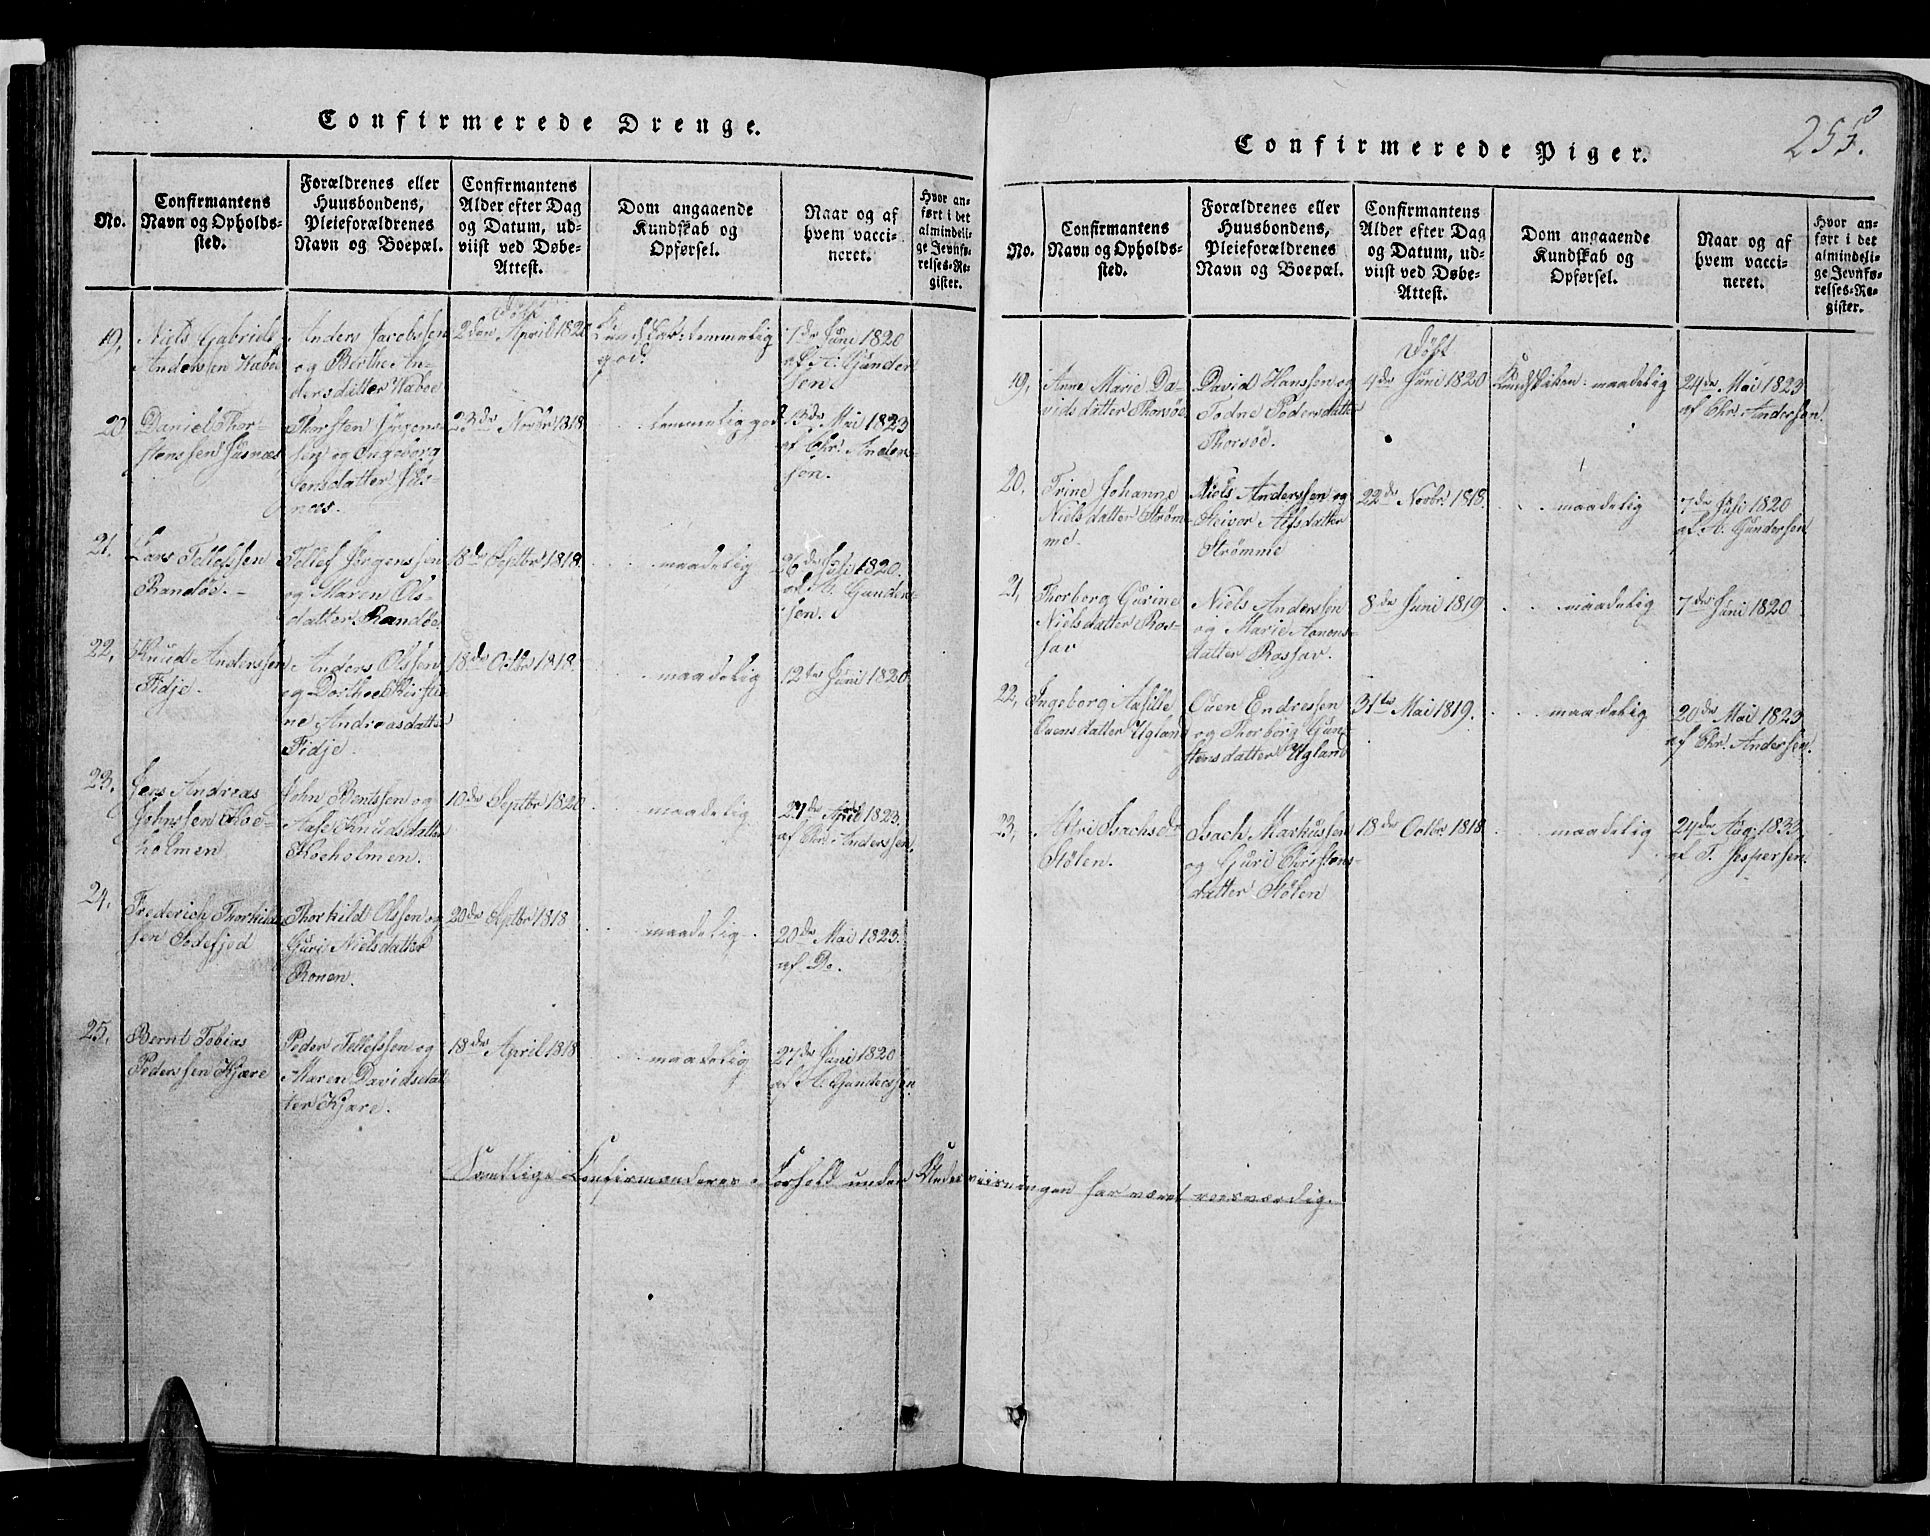 Confirmerede Drenge.
No.
Confirmantens
Navn og Opholds-
sted.
Forældrenes eller
Huusbondens,
Pleieforældrenes
Navn og Boepæl.
Confirmantens
Alder efter Dag
og Datum, ud-
viist ved Døbe-
Attest.
Dom angaaende
Kundskab og
Opførsel.
Naar og af
hvem vacci-
neret.
Hvor an-
ført i det
almindeli-
ge Jevnfø-
relses-Re-
gister.
19.
Niels Gabriel
Anderssen Haboe
Anders Jacobssen
og Berthe An-
dersdatter Haboe
døbt
2den April 1820
Kundskab: temmelig
god.
7de Juni 1820
af A. Gunder
sen
20
Daniel Thor-
stenssen Jusnæs
Thorsten Jörgens-
sen og Ingeborg
Jensdatter Jus-
næs.
23de Novbr 1818
temmelig god
13de Mai 1823
af Chr. Anders-
sen.
21.
Lars Tellefssen
Randöe.
Tellef Jörgenssen
og Maren Ols-
datter Randöe
18de Septbr 1818
maadelig
26de Juli 1820.
af A. Gunders-
sen.
22.
Knud Anderssen
Fidje.
Anders Olssen
og Dorthea Kirsti-
ne Andreasdatter
Fidje.
18de Octbr 1818.
maadelig
12te Juni 1820
23.
Jens Andreas
Johnssen Koe-
holmen
John Berntssen og
Aase Knudsdatter
Koeholmen.
10de Septbr 1820
maadelig
27de April 1823.
af Chr. Anderssen.
24.
Frederich Thorkilds
sen Todefjed
Thorkild Olssen og
Guri Nielsdatter
Ronen.
20de Septbr 1818
maadelig
20de Mai 1823.
af Do.
25.
Bernt Tobias
Pederssen Kjære
Peder Tellefssen og
Maren Davidsdat
ter Kjære.
18de April 1818
maadelig
27de Juni 1820
af A. Gunderssen
Samtlige Confirmanderes Forhold under Underviisningen har været roesværdig.
255.
Confirmerede Piger.
No.
Confirmantens
Navn og Opholds-
sted.
Forældrenes eller
Huusbondens,
Pleieforældrenes
Navn og Boepæl.
Confirmantens
Alder efter Dag
og Datum, ud-
viist ved Døbe-
Attest.
Dom angaaende
Kundskab og
Opførsel.
Naar og af
hvem vacci-
neret.
Hvor an-
ført i det
almindeli-
ge Jevnfø-
relses-Re-
gister.
19.
Anne Marie Da-
vidsdatter Thorsöe
David Hanssen og
Todne Pedersdatter
Thorsöe.
Döbt
4de Juni 1820
Kundskaben: maadelig
24de Mai 1823
af Chr. Andersen.
20.
Trine Johanne
Nielsdatter Ström-
me.
Niels Anderssen og
Steivor Alfsdatter
Strömme
22de Novbr 1818.
maadelig
7de Juli 1820
af A. Gundersen
21.
Thorborg Gurine
Nielsdatter Ros-
sav
Niels Anderssen
og Marie Aanons-
datter Rossav.
8de Juni 1819
maadelig
7de Juni 1820
22.
Ingeborg Axsille
Ouensdatter Ugland
Ouen Endressen
og Thorborg Gun-
stensdatter Ugland
31te Mai 1819.
maadelig
20de Mai 1823
af Chr. Andersen.
23.
Isachsdr
Stölen.
Isach Markussen
og Guri Christens-
datter Stölen
18de Octbr 1818
maadelig
24de Aug. 1833
af T. Jespersen.